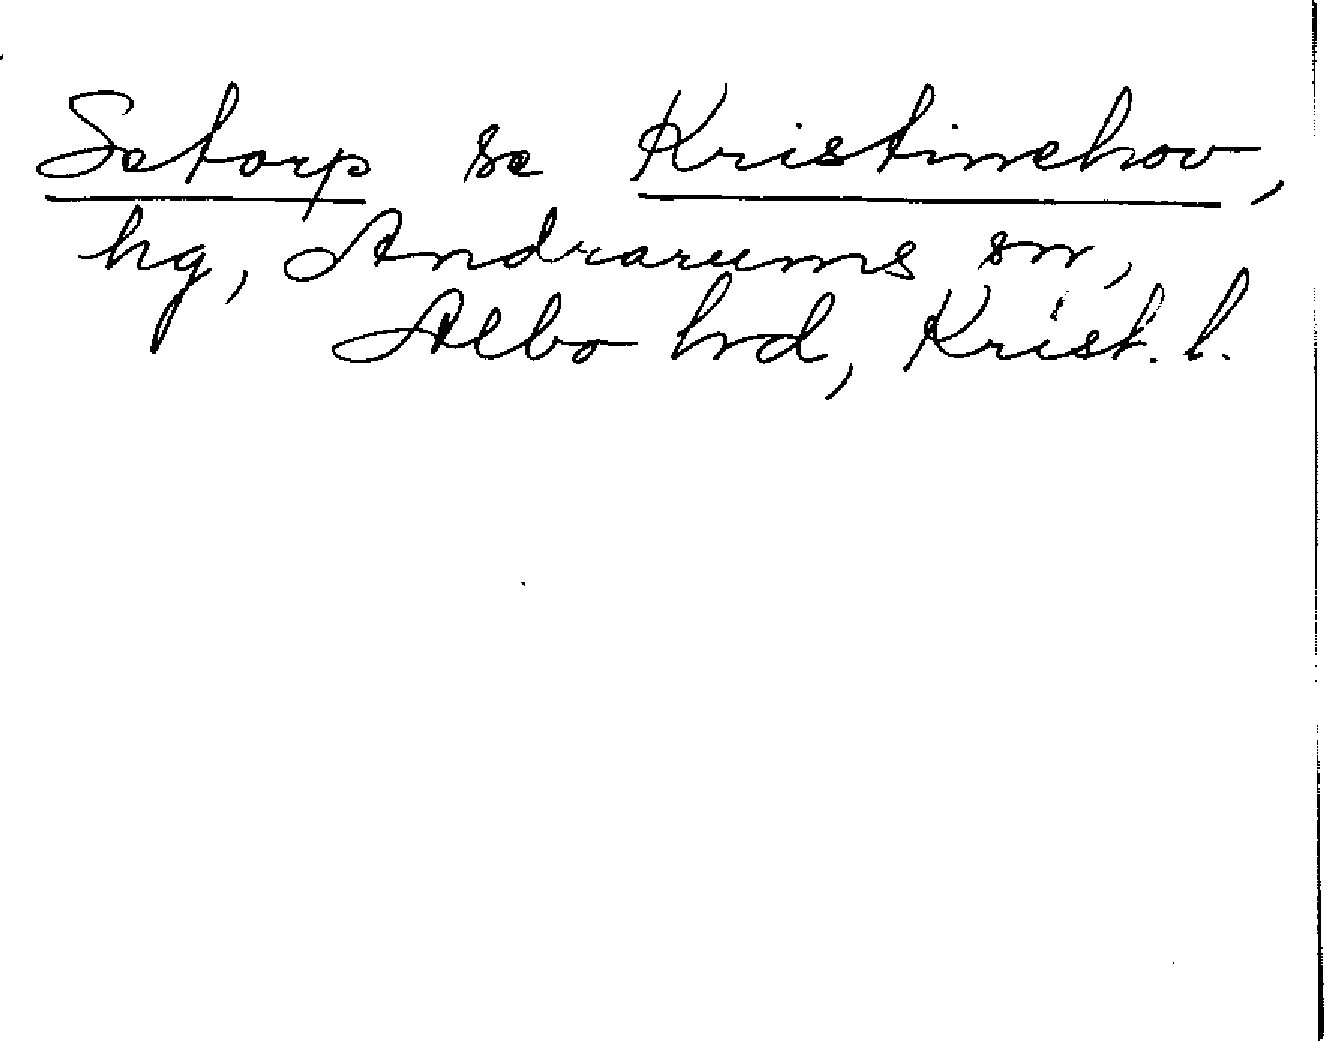 Setorp se Kristinehov,
hg, Andrarums sn,
Albo hd, Krist. l.